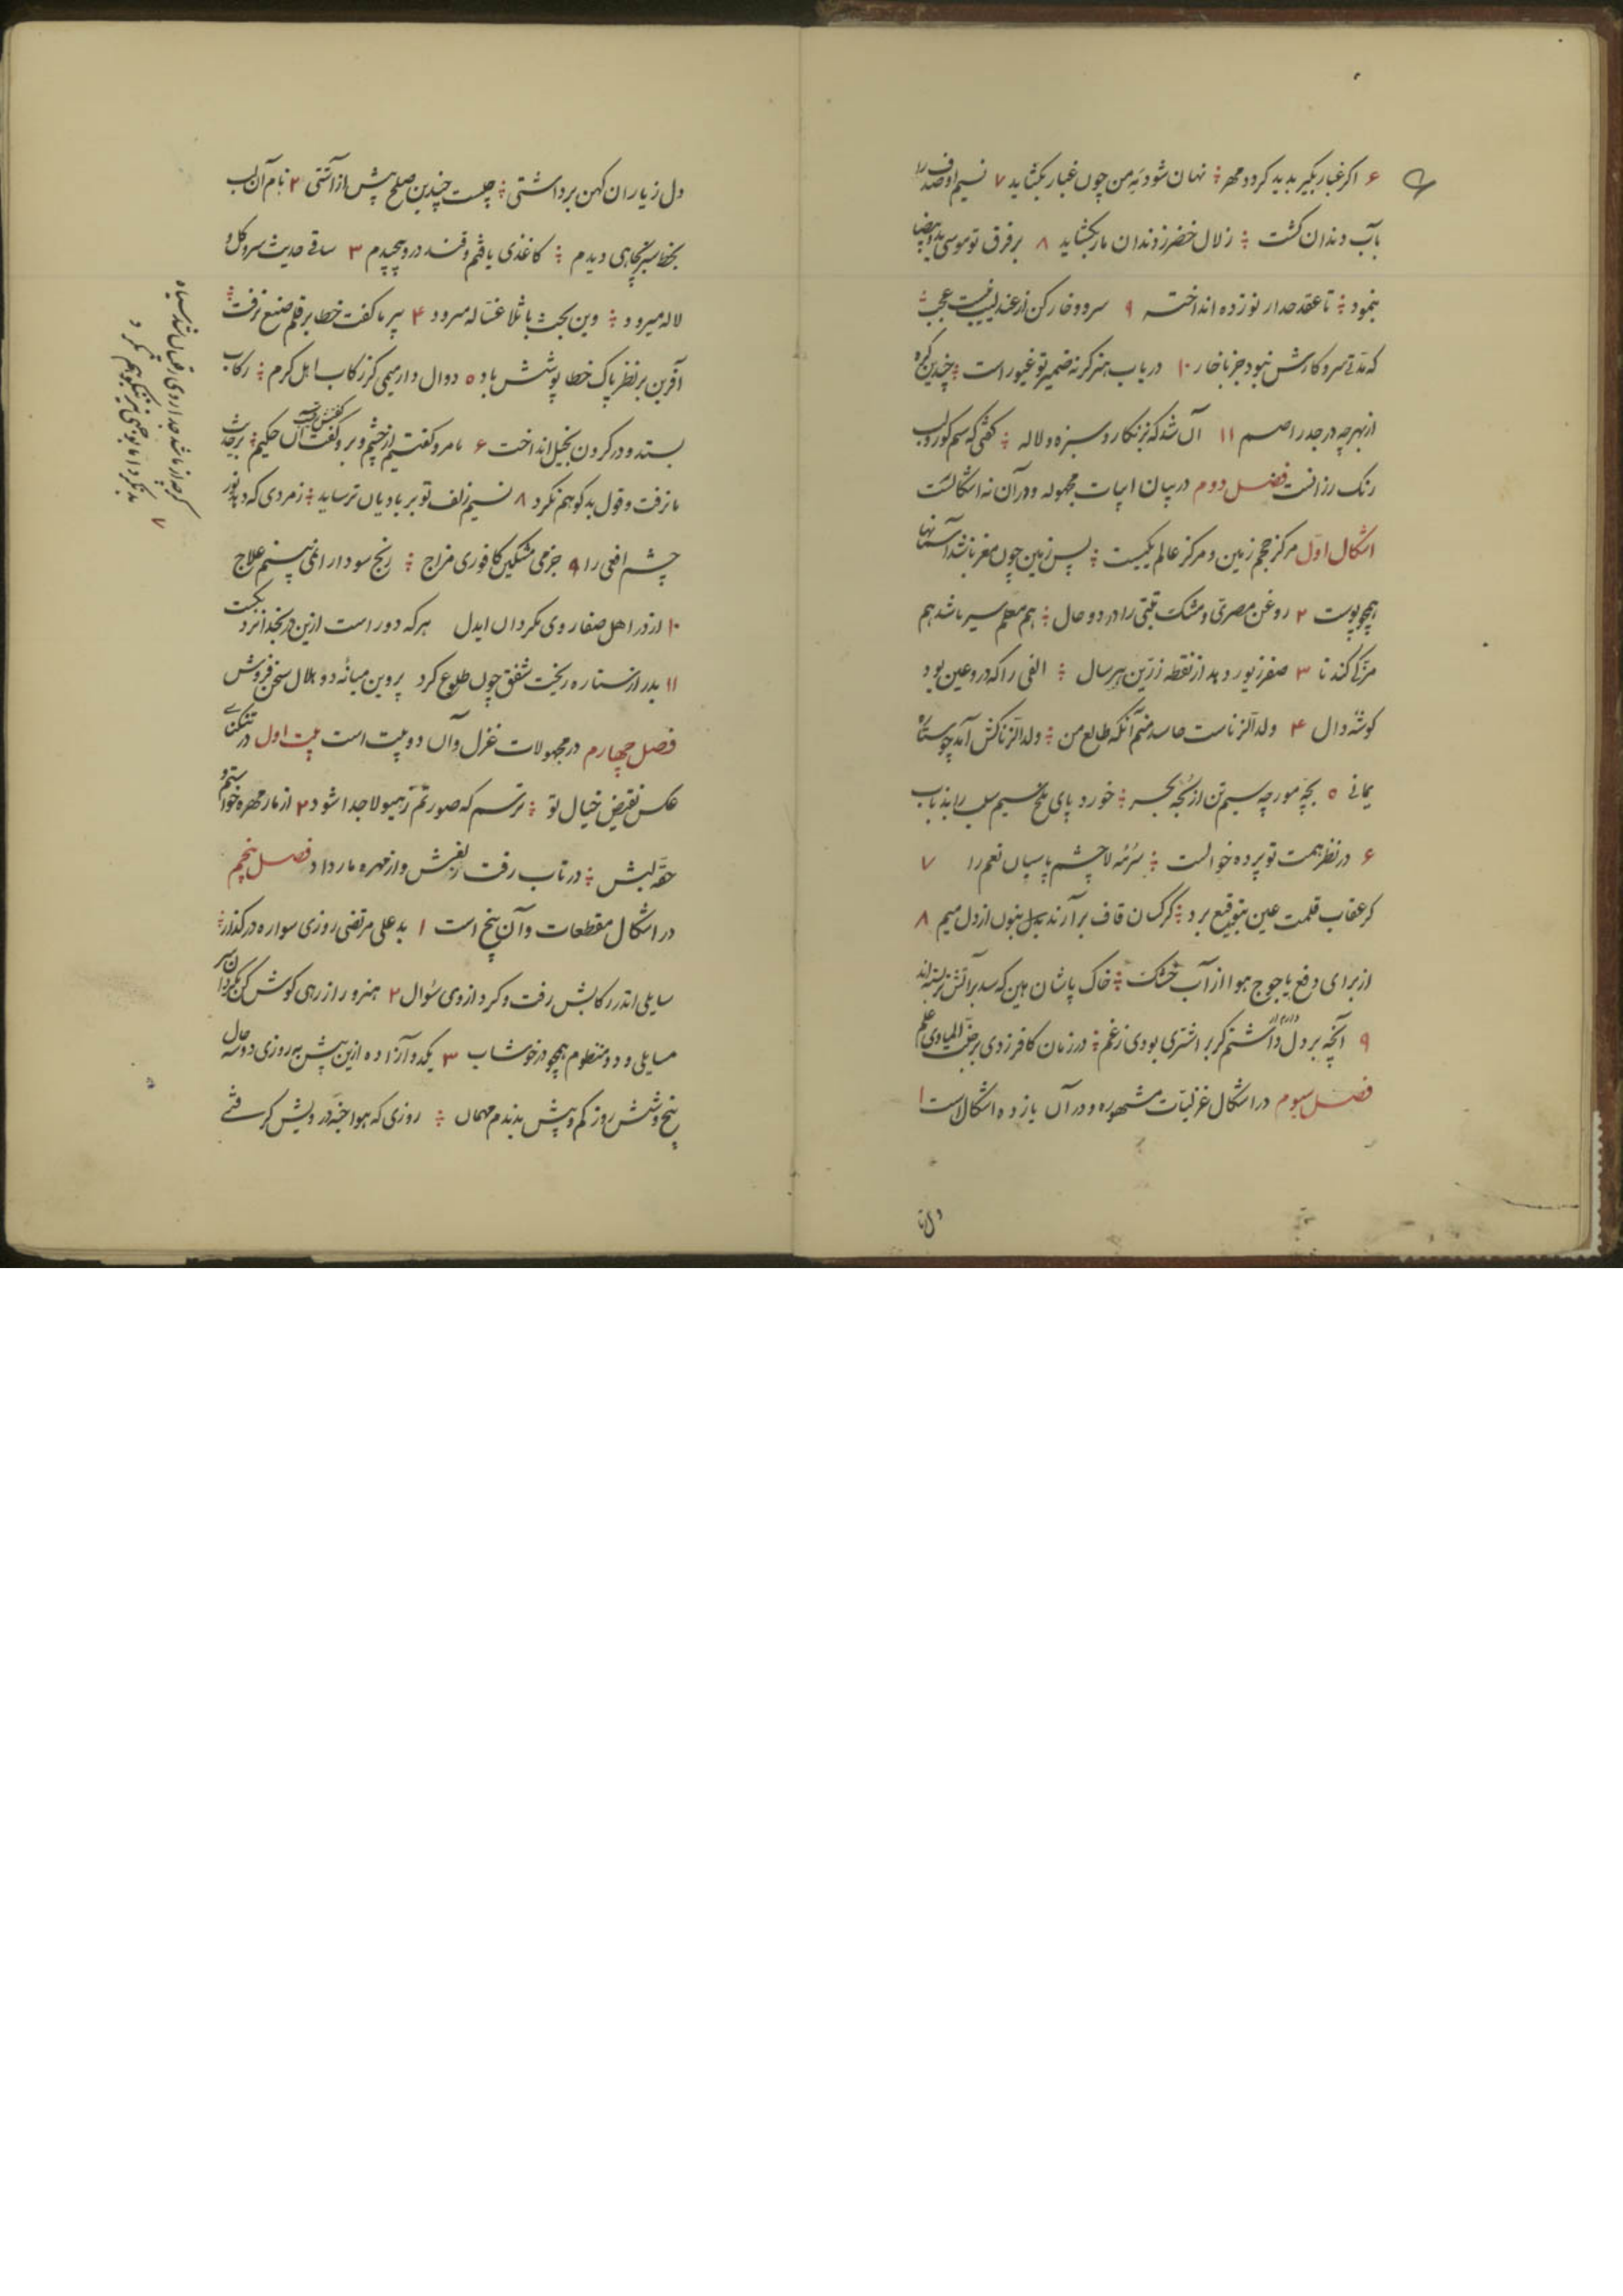 ۶ اکر غبار بکیر بدید کردد مهر ؞ نهان شود نه من چون غبار بکشاید ۷ نسیم او صدف را
بآب دندان کشت ؞ زلال خضر ز دندان مار بکشاید ۸ برفرق تو موسی ید و بیضا
بنمود ؞ تا عقد جدار نوزده انداخته ۹ سر و وخار کن از عندلیب نیست عجب ؞
که مدتی سر و کارش نبود جز با خار ۱۰ درباب هنر کرنه ضمیر تو غیور است ؞ چندین کره
از بهر چه در جدر اصم ۱۱ آن شد که ز نکار و سبزه و لاله ؞ کفتی که سم کوزن و لب
رنک رزانست فصل دوم در بیان ابیات مجهوله و در آن نه اشکالست
اشکال اول مرکز حجم زمین و مرکز عالم یکیست ؞ پس زمین چون مغز باشد آسمانها
همچو پوست ۲ روغن مصری و مشک تبتی را در دو حال ؞ هم معلم سیر باشد هم
مزکی کندنا ۳ صفر زیور دهد از نقطه زرین هر سال ؞ الفی را که در و عین بود
کوشه دال ۴ ولد الزناست حاسد منم آنکه طالع من ؞ ولد الزنا کش آمد چو ستاره
یمانی ۵ بچه مورچه سیم تن از بچه بحر ؞ خورد پای ملخ سیم سلب را بذباب
۶ در نظر همت تو پرده خوالست ؞ سرمه لا چشم پاسبان نعم را ۷
کر عقاب قلمت عین بتوقیع برد ؞ کرکسان قاف برآرند بدل نون از دل میم ۸
از برای دفع یاجوج هوا از آب خشک ؞ خاک پاشان بین که سد بر آتش تر بسته اند
۹ آنچه بر دل داشتم کر بر اشتری بودی ز غم ؞ در زمان کافر زدی بر جنت الماوی علم
فصل سیوم در اشکال غزلیات مشهوره و در آن یازده اشکالست ۱
دل ز یاران کهن برداشتی ؞ چیست چندین صلح پیش از آشتی ۲ نام آن لب
بخط سبز بجاهی دیدم ؞ کاغذی یافتم و قند درو پیچیدم ۳ ساقی حدیث سرو و کل و
لاله میرود ؞ وین بحث با ثلاثه غساله میرود ۴ پیر ما کفت خطا بر قلم صنع نرفت ؞
آفرین بر نظر پاک خطا پوشش باد ۵ دوال و ارمیمی کز رکاب اهل کرم ؞ رکاب
بستد و در کردن بخیل انداخت ۶ نامرد کفتیم از خشم و برو کفت آن حکیم ؞ برجدث
ما نرفت و قول بدکو هم نکرد ۸ نسیم زلف تو بر بادیان ترساید ؞ زمردی که دهد نور
چشم افعی را ۹ جز می مشکین کافوری مزاج ؞ رنج سودا را نمی بینم علاج
۱۰ از در اهل صفا روی مکردان ایدل هر که دور است ازین در بخدا نزدیکست
۱۱ بدر از ستاره ریخت شفق چون طلوع کرد پروین میانه دو هلال سخن فروش
فصل چهارم در مجهولات غزل و آن دو بیت است بیت اول در تنکنای
عکس نقیض خیال تو ؞ ترسم که صورتم ز هیولا جدا شود ۲ از مار مهره خواستم و
حقه لبش ؞ در تاب رفت زلفش و از مهره مار داد فصل پنجم
در اشکال مقطعات و آن پنج است ۱ بد علی مرتضی روزی سواره در کذار ؞
سایلی اندر رکابش رفت و کرد از وی سؤال ۲ هنرور از رهی کوش کن
مسایلی دو و منظوم همچو در خوشاب ۳ یکدو آزاده ازین پیش بهر روزی دو سه حال
پنج و شش روز کم و بیش بدندم مهمان ؞ روزی که هوا خبه درویش کرفتی
دل ز
کرچه از ما شد جدا روی رقیبان شد سیاه
۷